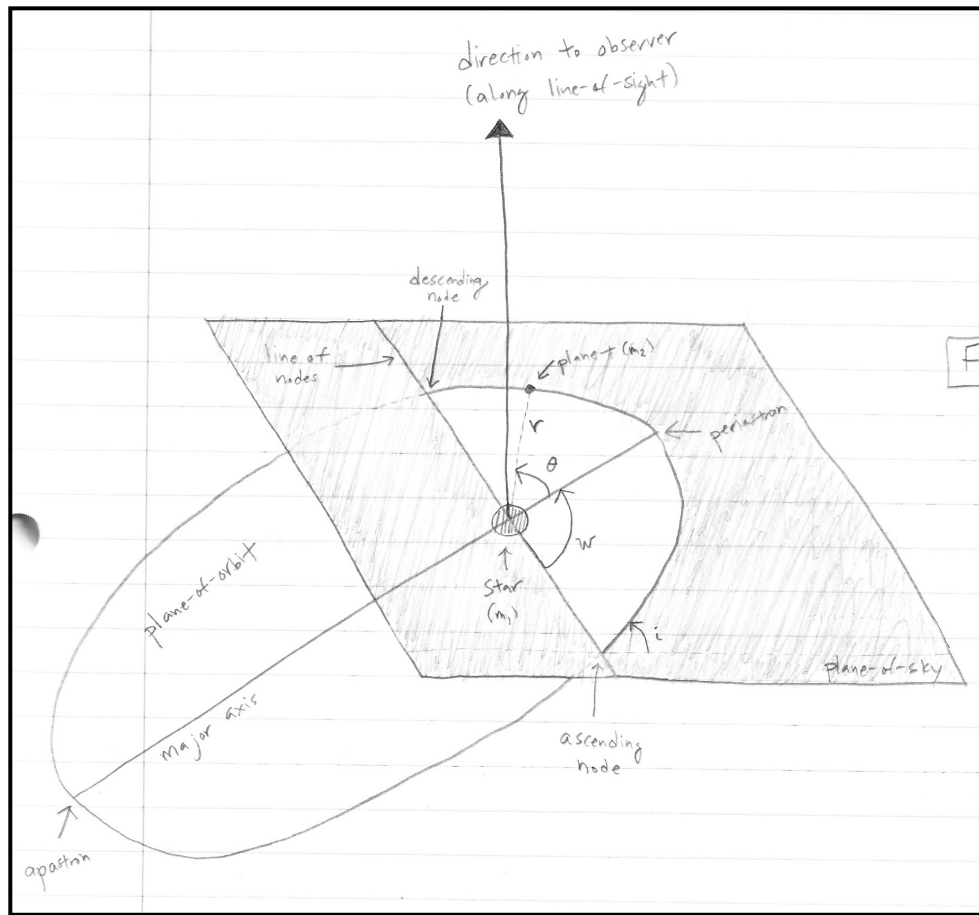 direction to observer
(along line-of-sight)
descending
node
line of
nodes
planet (m₂)
F
r
periastron
θ
w
plane-of-orbit
star
(m₁)
i
plane-of-sky
major axis
ascending
node
apastron